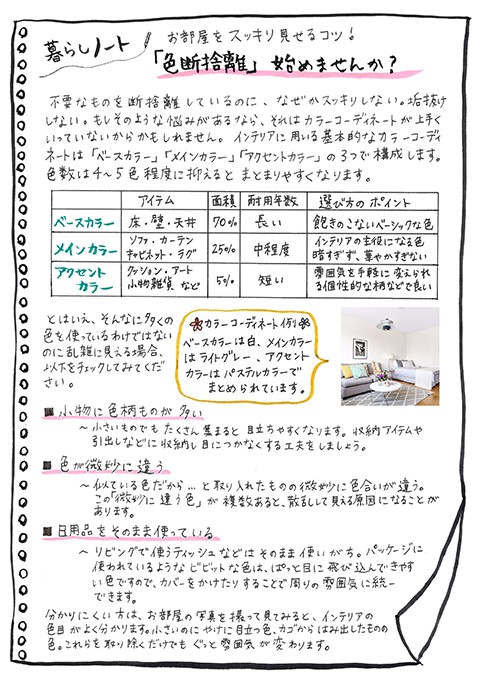 暮らしノート
お部屋をスッキリ見せるコツ!
「色断捨離」始めませんか?
不要なものを断捨離しているのに、なぜかスッキリしない。垢抜け
しない。もしそのような悩みがあるなら、それはカラーコーディネートが上手く
いっていないからかもしれません。インテリアに用いる基本的なカラーコーディ
ネートは「ベースカラー」「メインカラー」「アクセントカラー」の3つで構成します。
色数は4~5色程度に抑えるとまとまりやすくなります。
アイテム 面積 耐用年数 選び方のポイント
ベースカラー 床・壁・天井 70% 長い 飽きのこないベーシックな色
メインカラー ソファ・カーテン キャビネット・ラグ 25% 中程度 インテリアの主役になる色 暗すぎず、華やかすぎない
アクセントカラー クッション・アート 小物雑貨 など 5% 短い 雰囲気を手軽に変えられる個性的な柄などで良い
とはいえ、そんなに多くの
色を使っているわけではない
のに乱雑に見える場合、
以下をチェックしてみてくだ
さい。
カラーコーディネート例
ベースカラーは白、メインカラー
はライトグレー、アクセント
カラーはパステルカラーで
まとめられています。
■小物に色柄ものが多い
~小さいものでもたくさん集まると目立ちやすくなります。収納アイテムや
引出しなどに収納し目につかなくする工夫をしましょう。
■色が微妙に違う
~似ている色だから…と取り入れたものの微妙に色合いが違う。
この「微妙に違う色」が複数あると、散乱して見える原因になることが
あります。
■日用品をそのまま使っている
~リビングで使うティッシュなどはそのまま使いがち。パッケージに
使われているようなビビットな色は、ぱっと目に飛び込んできやす
い色ですので、カバーをかけたりすることで周りの雰囲気に統一
できます。
分かりにくい方は、お部屋の写真を撮って見てみると、インテリアの
色目がよく分かります。小さいのにやけに目立つ色、カゴからはみ出したものの
色。これらを取り除くだけでもぐっと雰囲気が変わります。